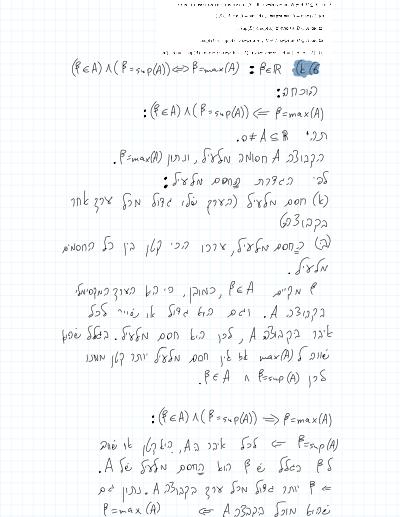 6) k) β∈ℝ : (β∈A)∧(β=sup(A))⟺β=max(A)
הוכחה:
(β∈A)∧(β=sup(A)) ⟸ β=max(A):
יהי ∅≠A⊆ℝ.
הקבוצה A חסומה מלעיל, ונתון β=max(A).
לפי הגדרת החסם מלעיל:
(א) חסם מלעיל (הערך שלו גדול מכל ערך אחר
בקבוצה)
(ב) החסם מלעיל, ערכו הכי קטן בין כל החסמים
מלעיל.
β מקיים β∈A, כמובן, כי הוא הערך המקסימלי
בקבוצה A. וגם הוא גדול או שווה לכל
איבר בקבוצה A, לכן הוא חסם מלעיל. בגלל שהוא
שווה ל max(A) אז אין חסם מלעיל יותר קטן ממנו
לכן β=sup(A) ∧ β∈A.
(β∈A)∧(β=sup(A)) ⟹ β=max(A):
β=sup(A) ⟸ לכל איבר בA, הוא קטן או שווה
לβ בגלל שβ הוא החסם מלעיל של A.
⟸ β יותר גדול מכל ערך בקבוצה A. נתון גם
שהוא מוכל בקבוצה A ⟸ β=max(A)